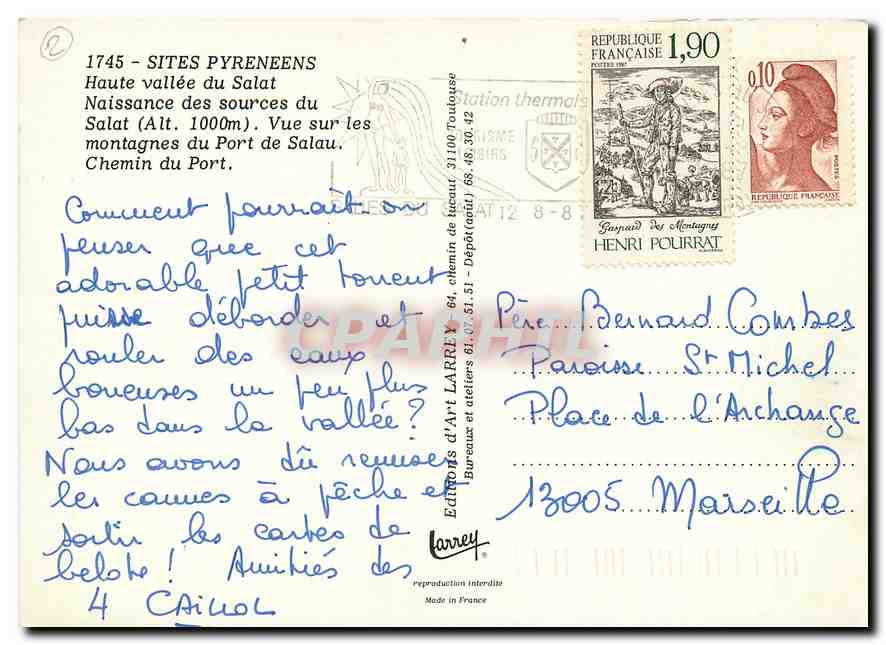 2
1745 - SITES PYRENEENS
Haute vallée du Salat
Naissance des sources du
Salat (Alt. 1000m). Vue sur les
montagnes du Port de Salau.
Chemin du Port.
Comment pourrait-on
penser que cet
adorable petit torrent
puisse déborder et
rouler des eaux
boueuses un peu plus
bas dans la vallée?
Nous avons dû remiser
les cannes à pêche et
sortir les cartes de
belote! Amitiés des
4 CAILLOL
Station thermale
TOURISME
LOISIRS
DU SALAT 12 8-8
REPUBLIQUE
FRANÇAISE 1,90
POSTES 1987
Gaspard des Montagnes
HENRI POURRAT
0,10
POSTES
REPUBLIQUE FRANÇAISE
Editions d'Art LARREY - 64, chemin de lucaut 31100 Toulouse
Bureaux et ateliers 61.07.51.51 - Dépôt (août) 68.48.30.42
Larrey
reproduction interdite
Made in France
Père Bernard Combes
Paroisse St Michel
Place de l'Archange
13005 Marseille
CPARHTL